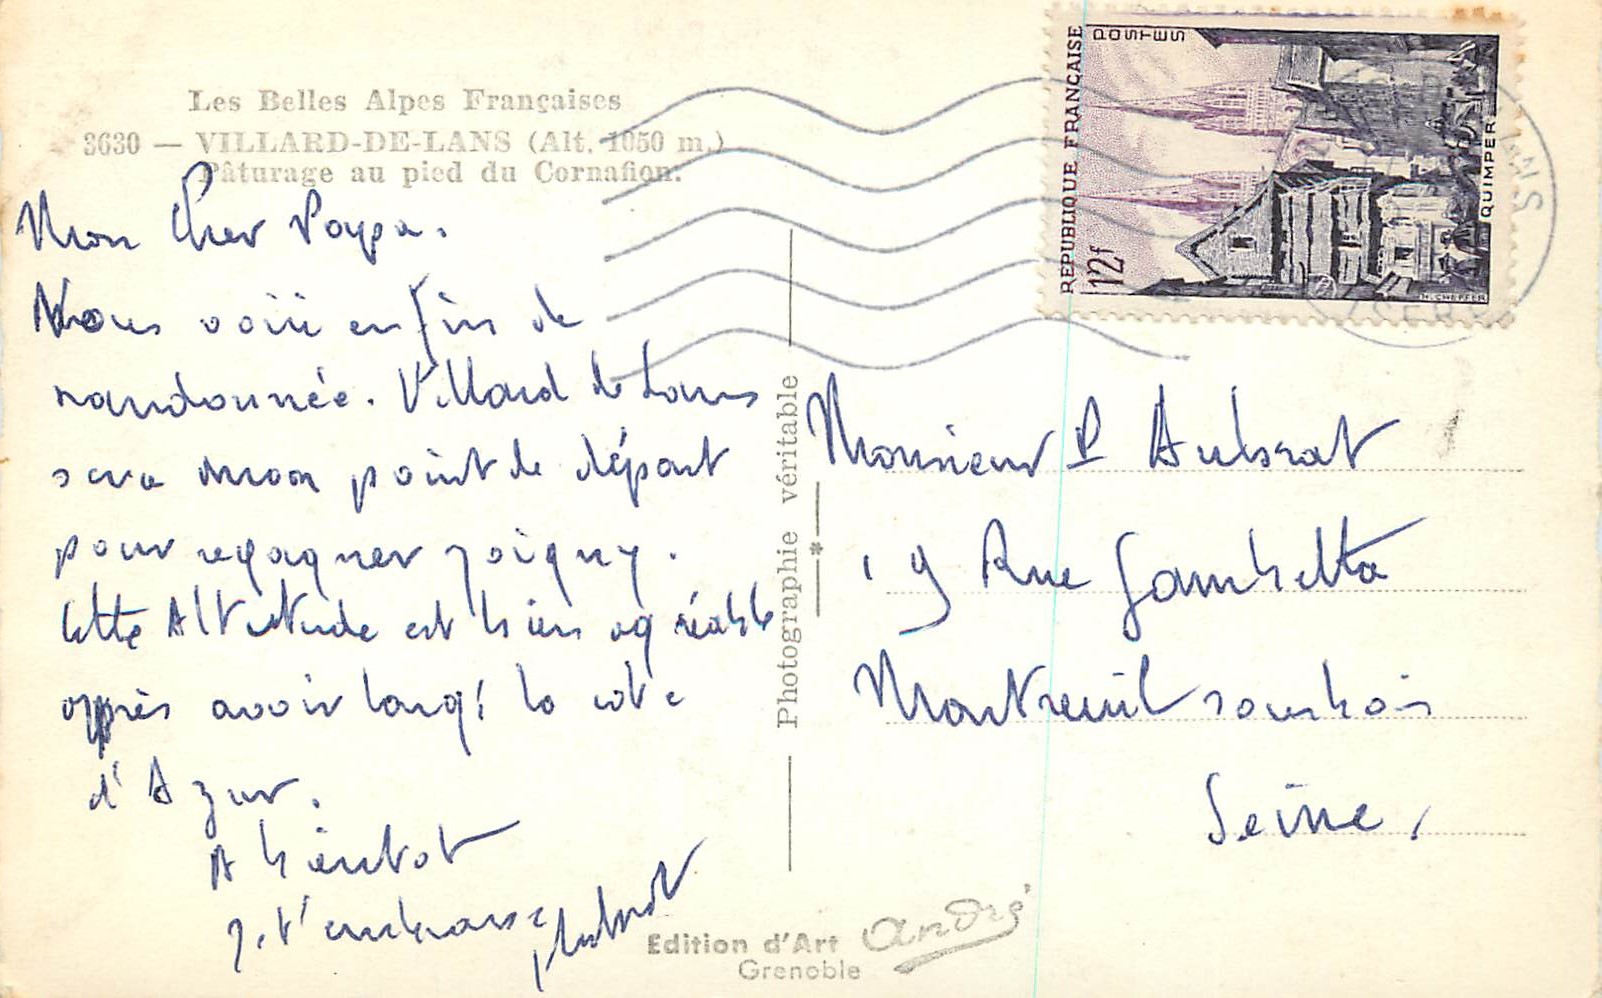 Les Belles Alpes Françaises
3630 — VILLARD-DE-LANS (Alt. 1050 m.)
Pâturage au pied du Cornafion.
Mon Cher Papa.
Nous voici enfin de
randonnée. Villard de Lans
sera mon point de départ
pour regagner Joigny.
Cette Altitude est bien agréable
après avoir longé la cote
d'Azur.
A bientot
J. t'embrasse
Photographie véritable
RÉPUBLIQUE FRANÇAISE
POSTES
12f
QUIMPER
H. CHEFFER
Monsieur P Aubrat
19 Rue Gambetta
Montreuil sous bois
Seine,
Edition d'Art André
Grenoble